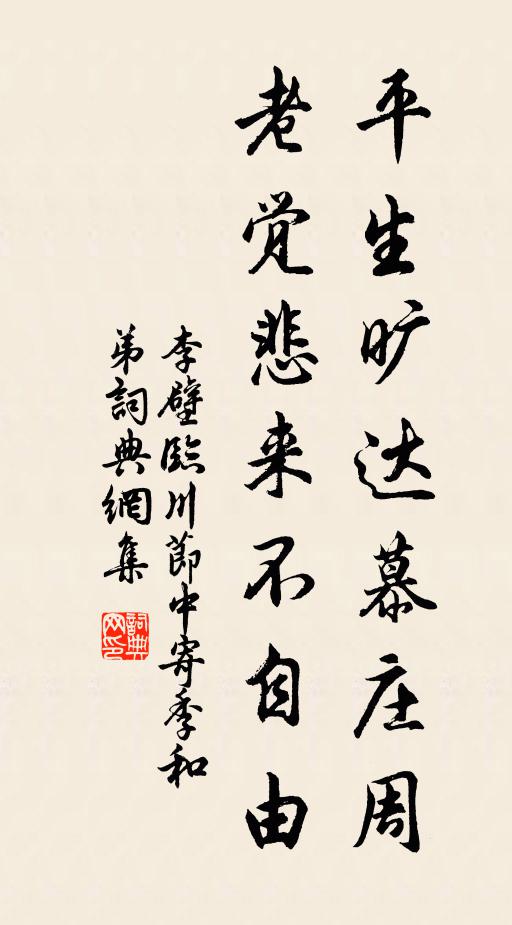 平生旷达慕庄周
老觉悲来不自由
李壁臨川節中寄季和
弟詞典網集
詞典网印